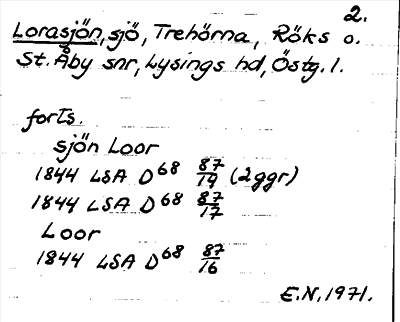 2.
Lorasjön, sjö, Trehörna, Röks o.
St. Åby snr, Lysings hd, Östg. l.
forts.
sjön Loor
1844 LSA D68 87/19 (2ggr)
1844 LSA D68 87/17
Loor
1844 LSA D68 87/16
E.N. 1971.